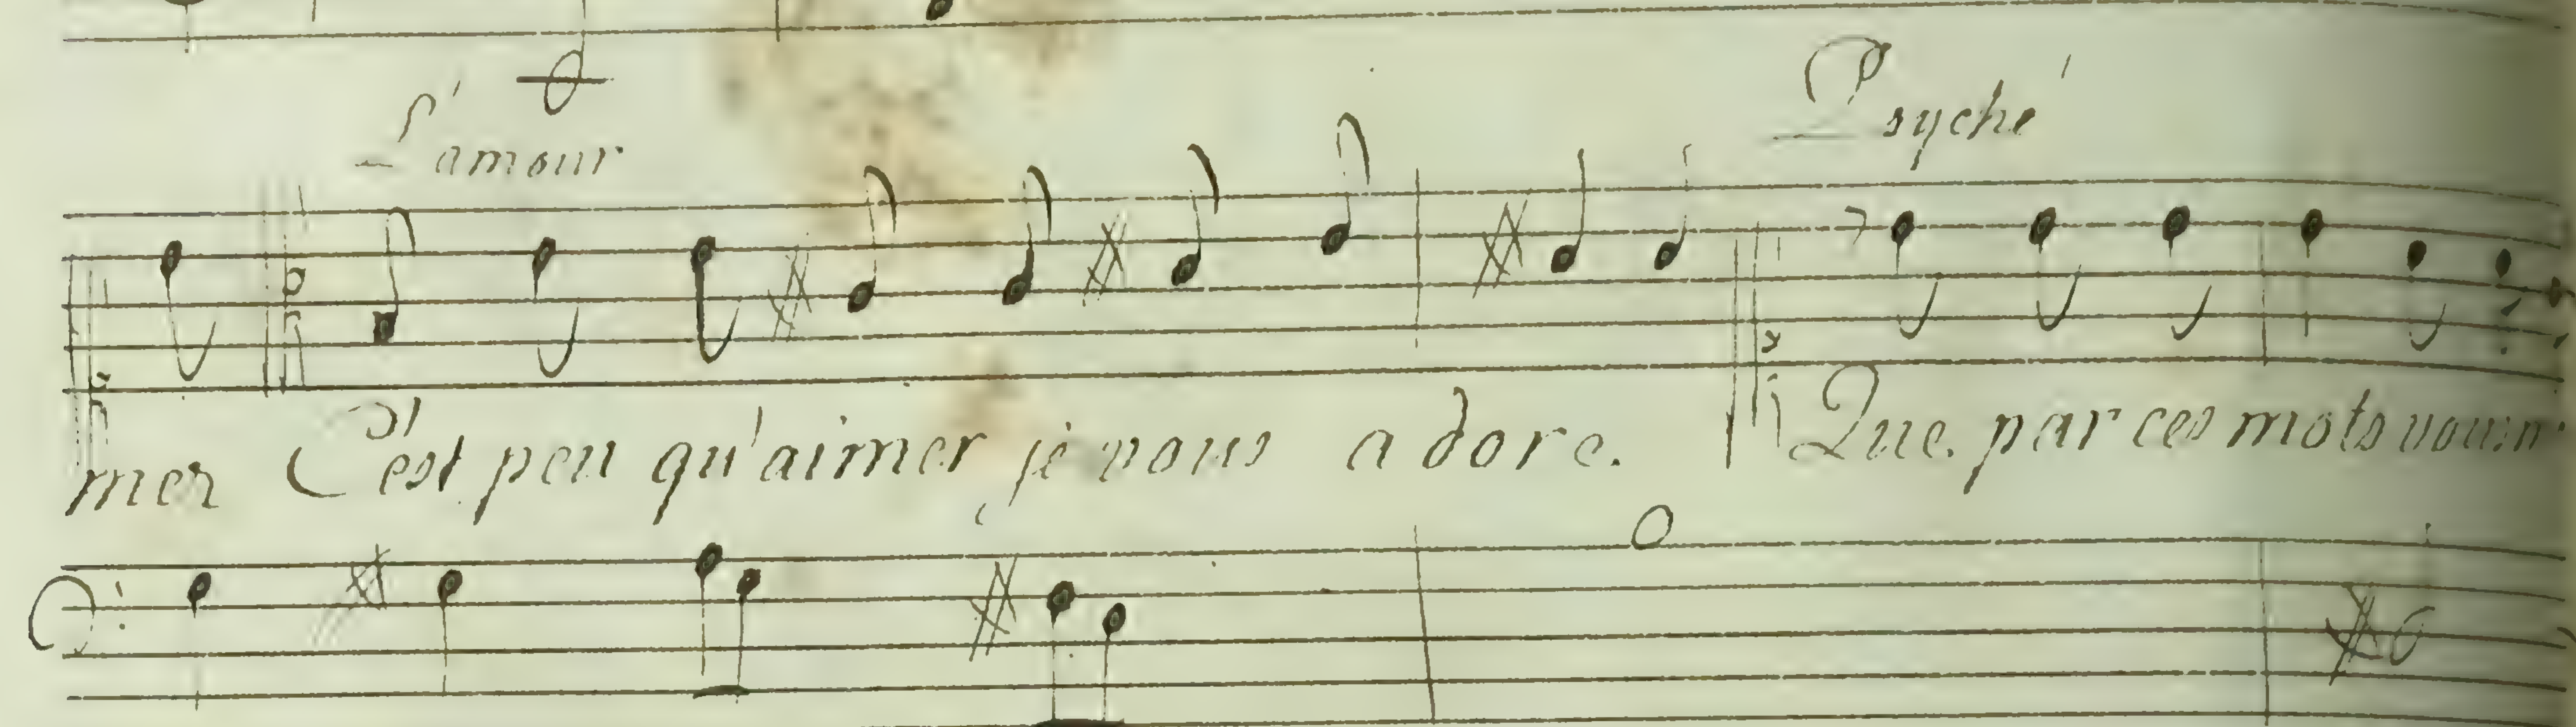 L'amour Psyché
mer C'est peu qu'aimer je vous adore. Que par ces mots